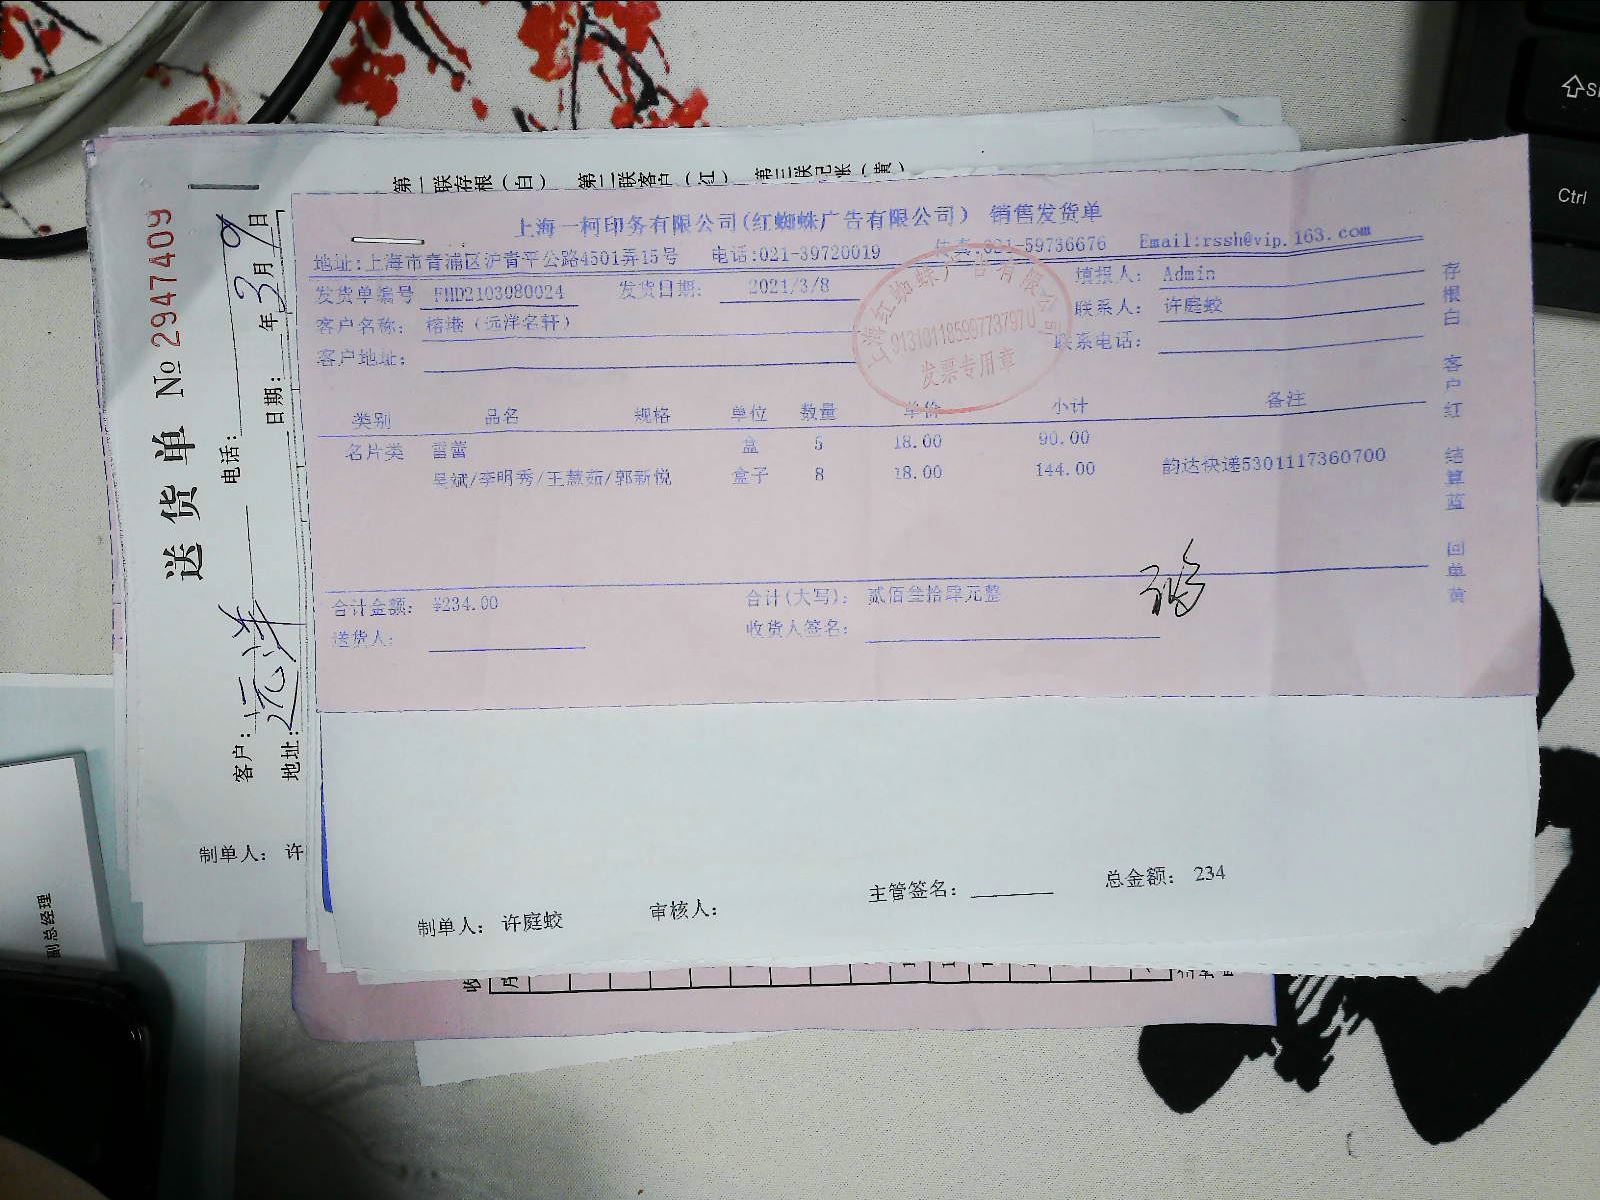 第一联存根（白） 第二联客户（红） 第三联记帐（黄）
送货单 № 2947409
电话： 年3月9日
客户：远洋 日期：
地址：
制单人： 许
上海一柯印务有限公司(红蜘蛛广告有限公司) 销售发货单
地址:上海市青浦区沪青平公路4501弄15号 电话:021-39720019 传真:021-59736676 Email:rssh@vip.163.com
发货单编号 FHD2103080024 发货日期: 2021/3/8 填报人: Admin
客户名称: 榕港（远洋名轩） 联系人: 许庭蛟
客户地址: 联系电话:
上海红蜘蛛广告有限公司
91310118599773797U
发票专用章
类别 品名 规格 单位 数量 单价 小计 备注
名片类 雷蕾 盒 5 18.00 90.00
吴斌/李明秀/王慧茹/郭新悦 盒子 8 18.00 144.00 韵达快递5301117360700
合计金额: ¥234.00 合计(大写): 贰佰叁拾肆元整
送货人: 收货人签名:
存根白 客户红 结算蓝 回单黄
制单人: 许庭蛟 审核人: 主管签名: 总金额: 234
副总经理
收
月
Ctrl